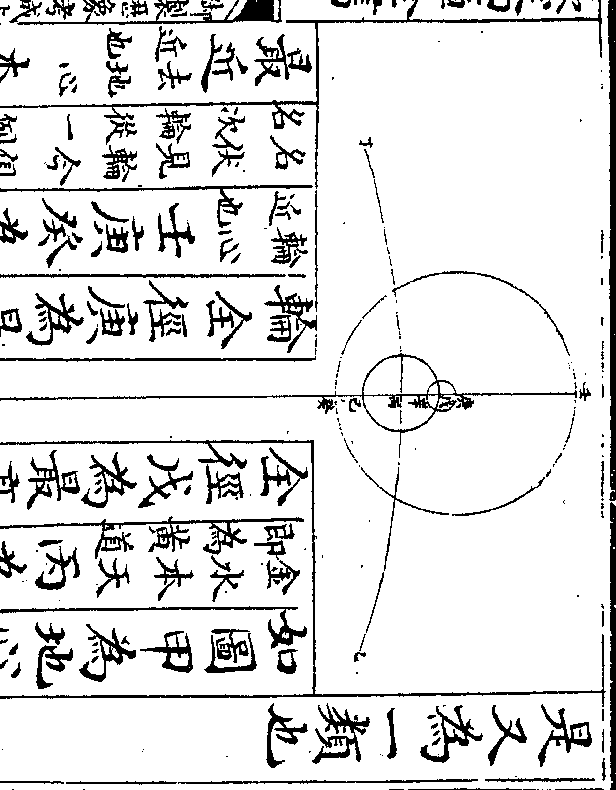 是又為一類也
如圖甲為地心
金水本天
即為黃道
丙為
全徑戊為最高
輪全徑庚為日
輪心
近也
壬庚癸為
名伏見輪今但
名次輪從一
最近
去地心
近也
本
壬
庚
戊
辛
丙
己
癸
丁
乙